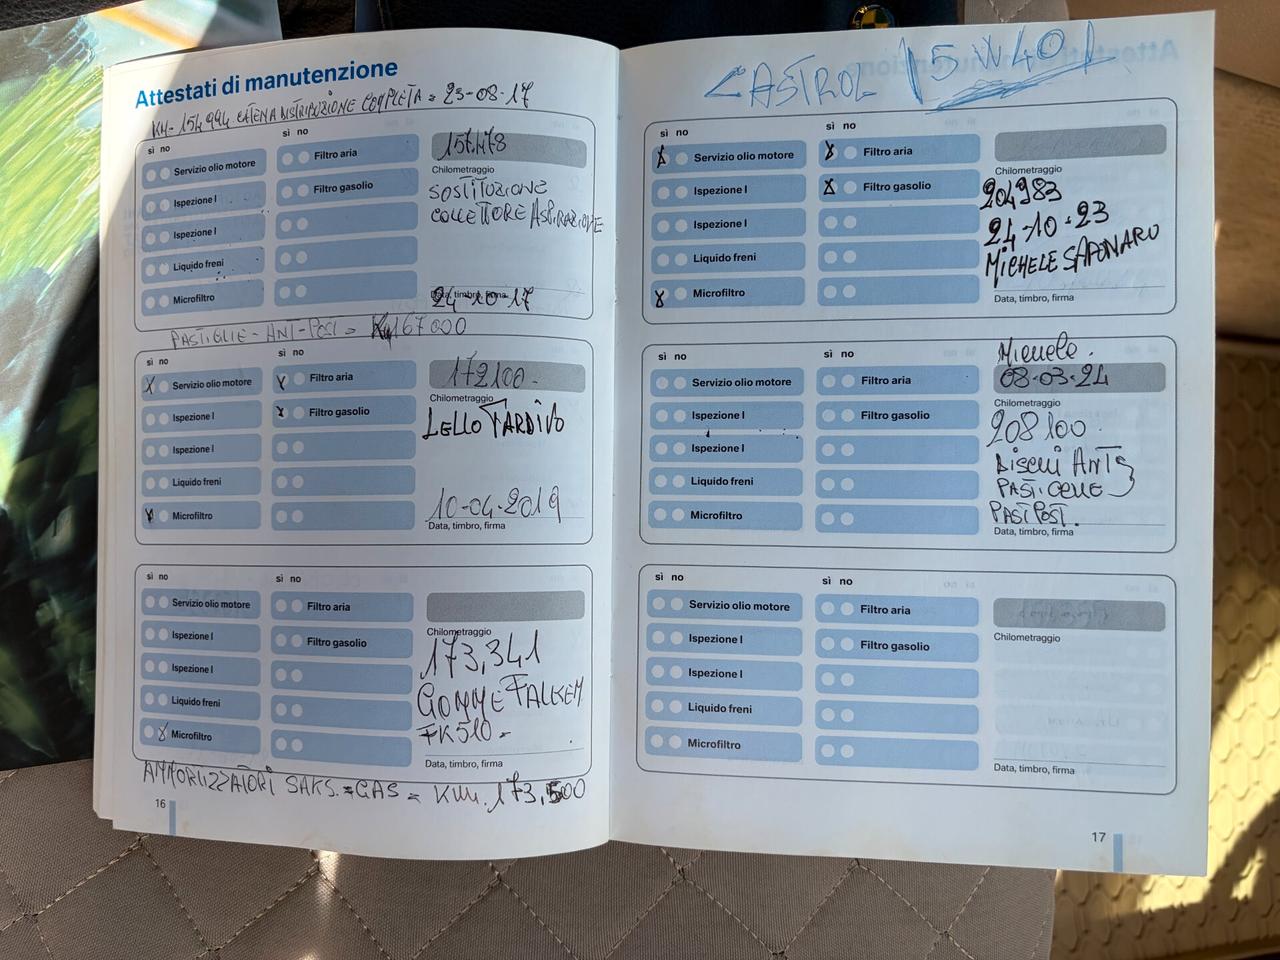 Attestati di manutenzione
KM- 154994 CATENA DISTRIBUZIONE COMPLETA = 23-08-17
sì no
sì no
Servizio olio motore
Filtro aria
Ispezione I
Filtro gasolio
Ispezione I
Liquido freni
Microfiltro
157.178
Chilometraggio
SOSTITUZIONE
COLLETTORE ASPIRAZIONE
24-10-17
Data, timbro, firma
PASTIGLIE - ANT-POST = KM 167000
sì no
sì no
Servizio olio motore
Filtro aria
Ispezione I
Filtro gasolio
Ispezione I
Liquido freni
Microfiltro
172100-
Chilometraggio
LELLO TARDIVO
10-04-2019
Data, timbro, firma
sì no
sì no
Servizio olio motore
Filtro aria
Ispezione I
Filtro gasolio
Ispezione I
Liquido freni
Microfiltro
Chilometraggio
173,341
GOMME FALKEM
FK510-
Data, timbro, firma
AMMORTIZZATORI SAKS = GAS = KM. 173,500
16
CASTROL 15W40
sì no
sì no
Servizio olio motore
Filtro aria
Ispezione I
Filtro gasolio
Ispezione I
Liquido freni
Microfiltro
Chilometraggio
204983
24-10-23
MICHELE SAPONARO
Data, timbro, firma
sì no
sì no
Servizio olio motore
Filtro aria
Ispezione I
Filtro gasolio
Ispezione I
Liquido freni
Microfiltro
Michele.
08-03-24
Chilometraggio
208100
DISCHI ANT
PAST POST.
Data, timbro, firma
sì no
sì no
Servizio olio motore
Filtro aria
Ispezione I
Filtro gasolio
Ispezione I
Liquido freni
Microfiltro
Chilometraggio
Data, timbro, firma
17